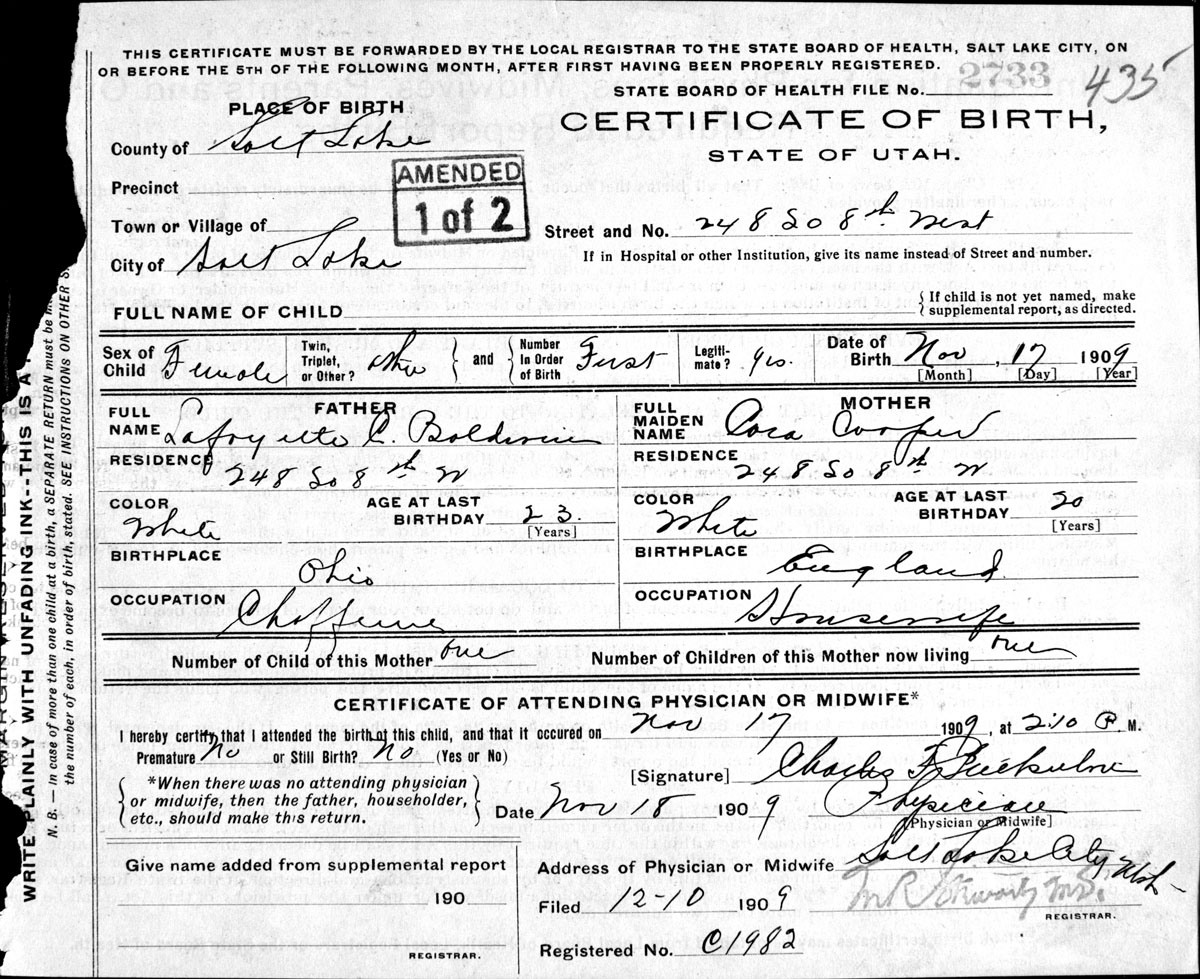 THIS CERTIFICATE MUST BE FORWARDED BY THE LOCAL REGISTRAR TO THE STATE BOARD OF HEALTH, SALT LAKE CITY, ON
OR BEFORE THE 5TH OF THE FOLLOWING MONTH, AFTER FIRST HAVING BEEN PROPERLY REGISTERED.
STATE BOARD OF HEALTH FILE No. 2733 435
PLACE OF BIRTH
CERTIFICATE OF BIRTH,
STATE OF UTAH.
County of Salt Lake
Precinct
AMENDED
1 of 2
Town or Village of
Street and No. 248 So 8th West
City of Salt Lake
If in Hospital or other Institution, give its name instead of Street and number.
FULL NAME OF CHILD
If child is not yet named, make
supplemental report, as directed.
Sex of Child Female
Twin, Triplet, or Other? other
and Number in Order of Birth First
Legiti-mate? yes.
Date of Birth Nov 17 1909
[Month] [Day] [Year]
FATHER
FULL NAME Lafayette C. Baldwin
RESIDENCE
248 So 8th W
COLOR White
AGE AT LAST BIRTHDAY 23.
[Years]
BIRTHPLACE
Ohio
OCCUPATION
MOTHER
FULL MAIDEN NAME Cora Cooper
RESIDENCE
248 So 8th W
COLOR White
AGE AT LAST BIRTHDAY 20
[Years]
BIRTHPLACE
England
OCCUPATION
Housewife
Number of Child of this Mother one
Number of Children of this Mother now living one
CERTIFICATE OF ATTENDING PHYSICIAN OR MIDWIFE*
I hereby certify that I attended the birth of this child, and that it occured on Nov 17 1909, at 2:10 P M.
Premature No or Still Birth? No. (Yes or No)
[Signature] Charles F.
*When there was no attending physician
or midwife, then the father, householder,
etc., should make this return.
Date Nov 18 1909
Physician
[Physician or Midwife]
Give name added from supplemental report
190
REGISTRAR.
Address of Physician or Midwife Salt Lake City Utah
Filed 12-10 1909
M.D.
REGISTRAR.
Registered No. C1982
WRITE PLAINLY WITH UNFADING INK--THIS IS A
N. B.—In case of more than one child at a birth, a SEPARATE RETURN must be
the number of each, in order of birth, stated. SEE INSTRUCTIONS ON OTHER